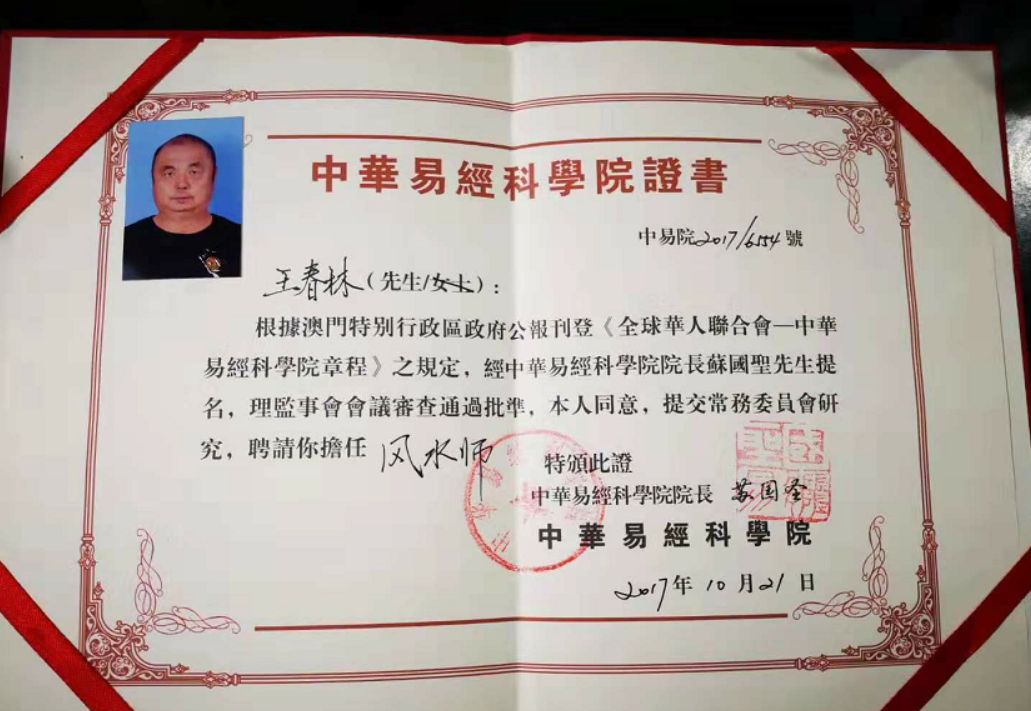 中華易經科學院證書
中易院2017/6554號
王春林(先生/女士):
根據澳門特别行政區政府公報刊登《全球華人聯合會—中華
易經科學院章程》之規定,經中華易經科學院院長蘇國聖先生提
名,理監事會會議審查通過批準,本人同意,提交常務委員會研
究,聘請你擔任 风水师
特頒此證
中華易經科學院院長 苏国圣
中華易經科學院
2017年10月21日